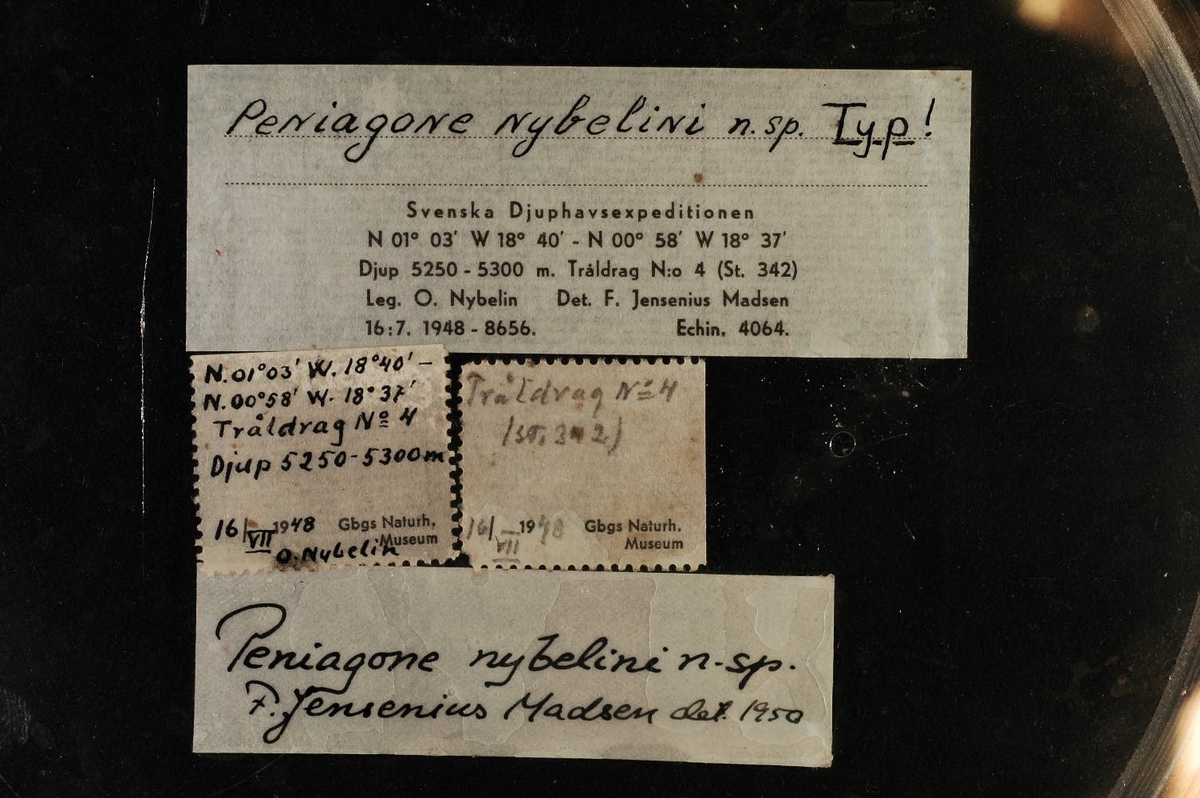 Peniagone nybelini n.sp. Typ!
Svenska Djuphavsexpeditionen
N 01° 03' W 18° 40' - N 00° 58' W 18° 37'
Djup 5250 - 5300 m. Tråldrag N:o 4 (St. 342)
Leg. O. Nybelin Det. F. Jensenius Madsen
16:7. 1948 - 8656. Echin. 4064.
N. 01°03' W. 18°40' –
N. 00°58' W. 18°37'
Tråldrag Nº 4
Djup 5250-5300m
16/VII 1948 Gbgs Naturh.
Museum
O. Nybelin
Tråldrag Nº 4
(St. 342)
16/VII 1948 Gbgs Naturh.
Museum
Peniagone nybelini n.sp.
F. Jensenius Madsen det. 1950